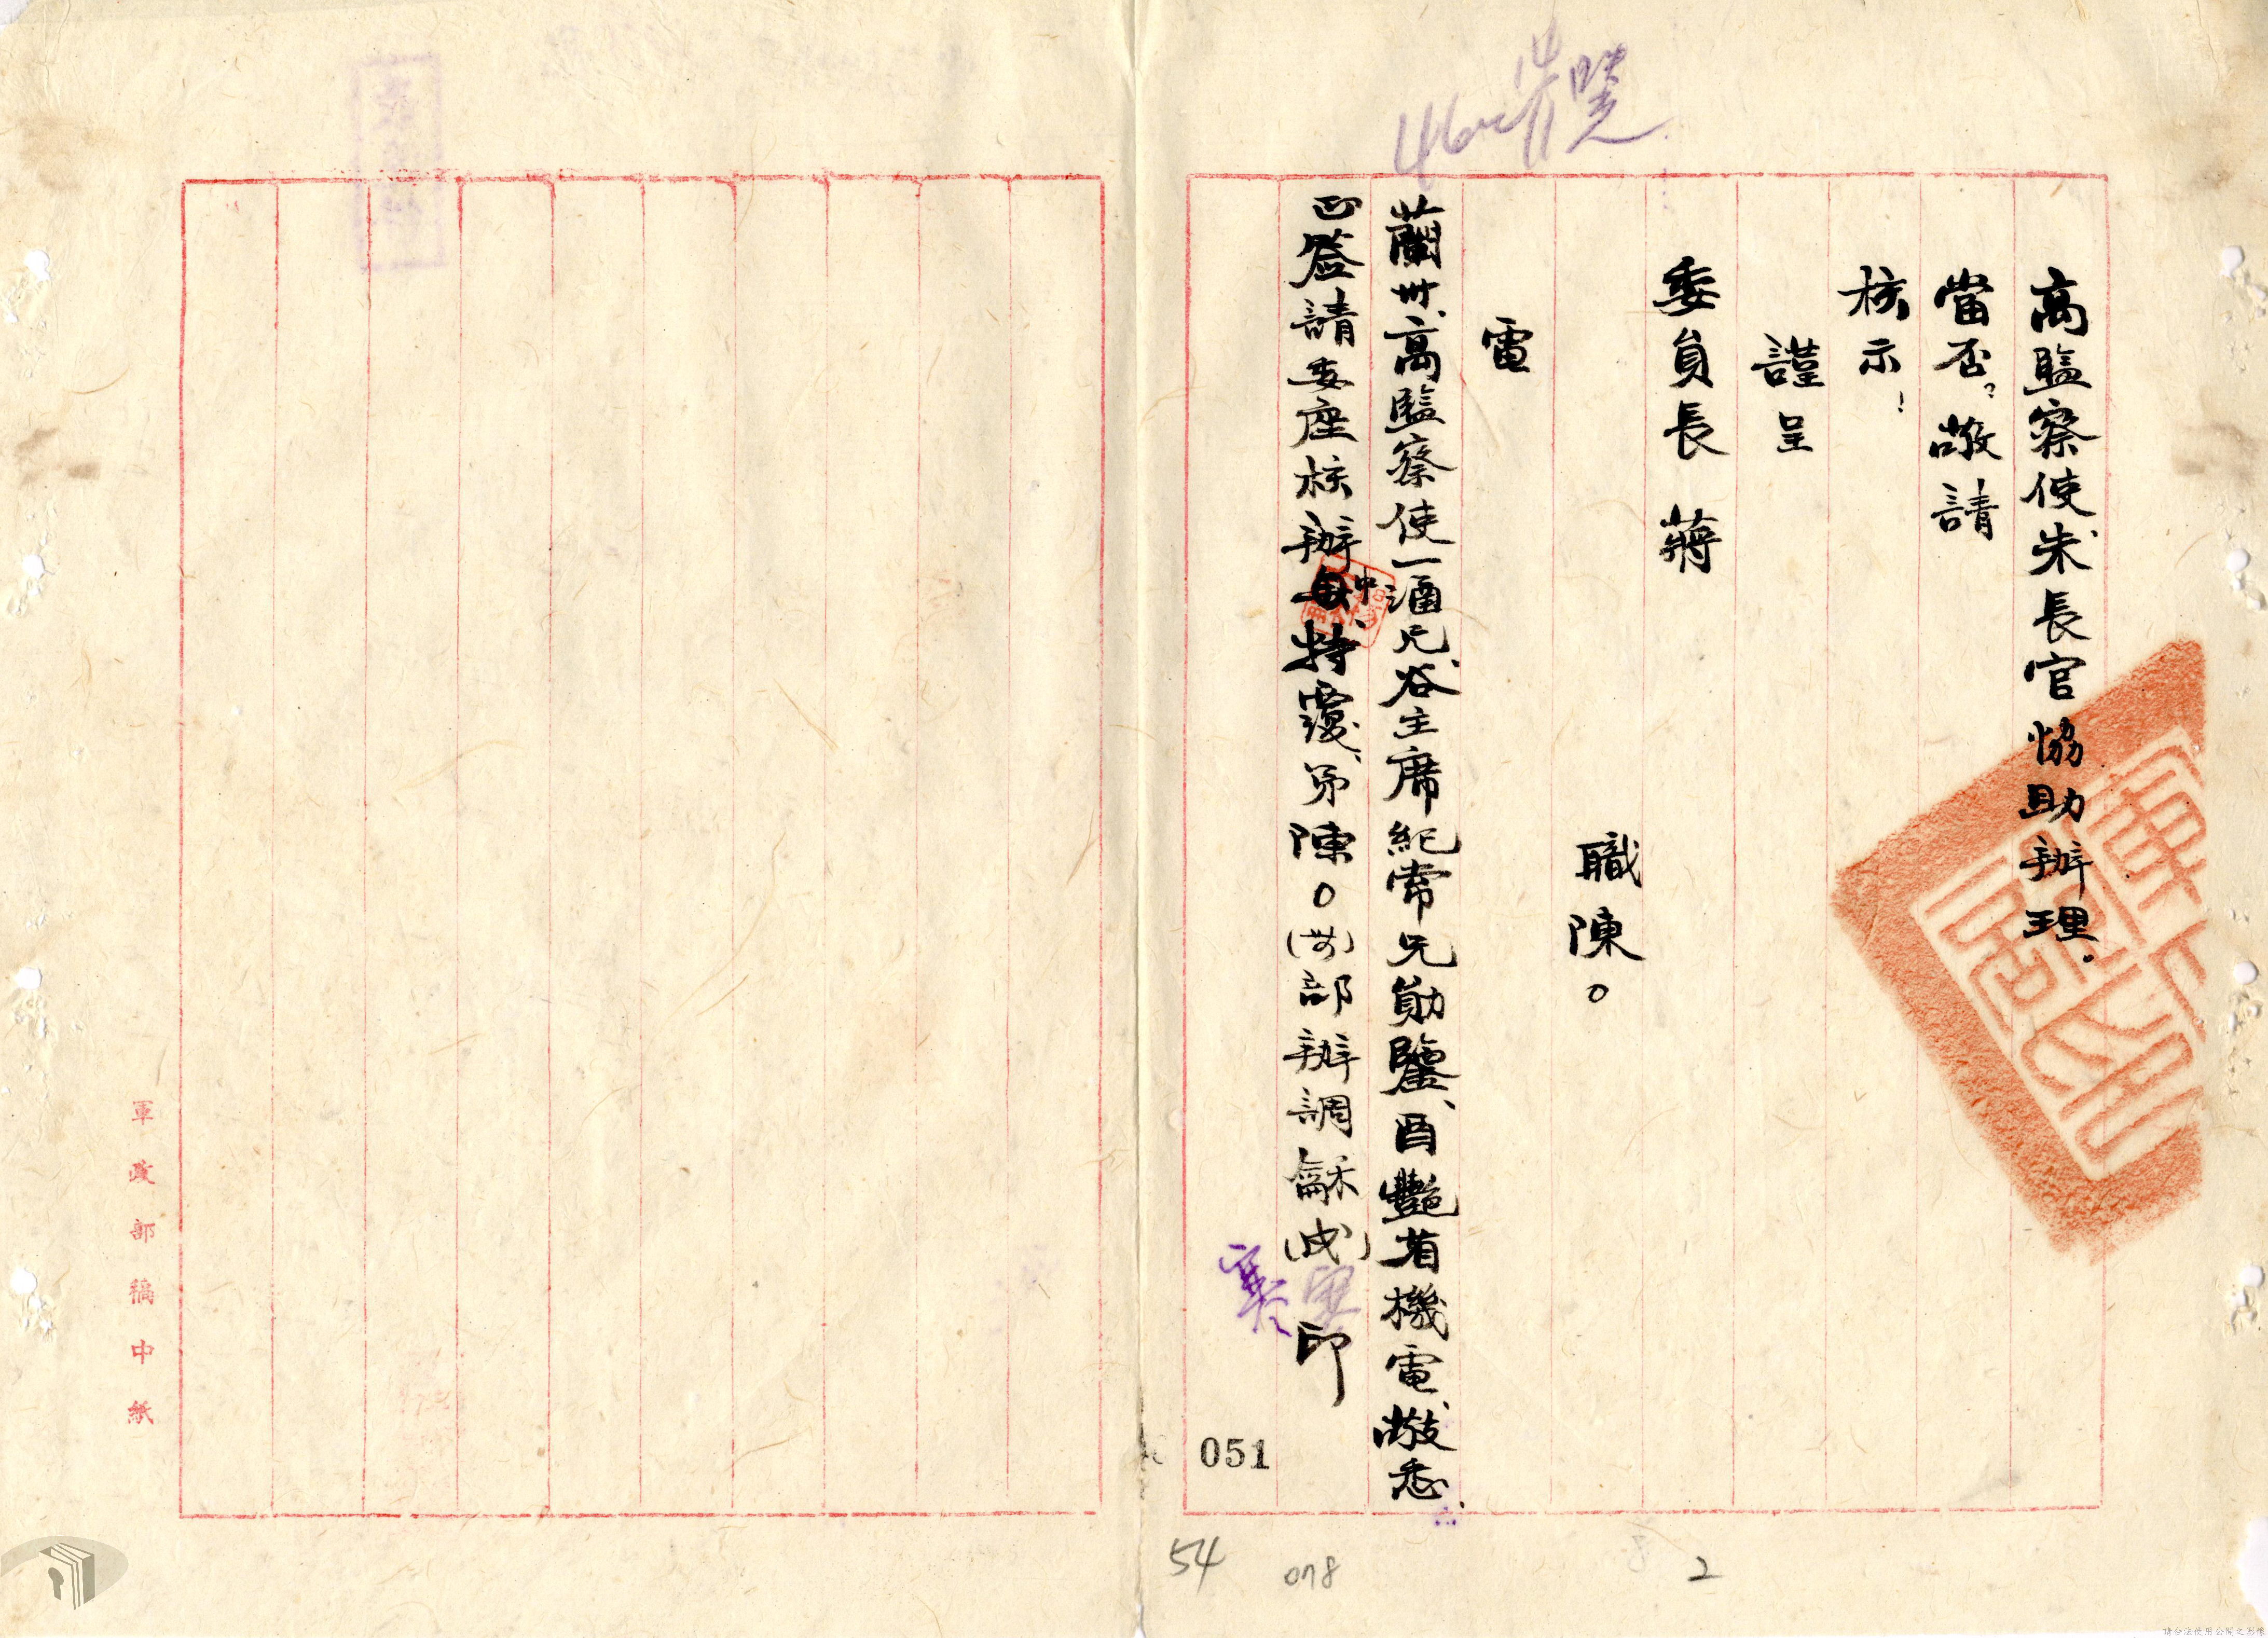 高監察使、朱長官協助辦理。
當否？敬請
核示！
謹呈
委員長 蔣
職陳○
電
蘭州、高監察使一涵兄、谷主席紀常兄勛鑒、酉豔省機電、敬悉、
正簽請委座核辦中、特覆、弟陳○(卅)部辦調龢(戌)印
051
54
078
2
軍政部稿中紙
請合法使用公開之影像